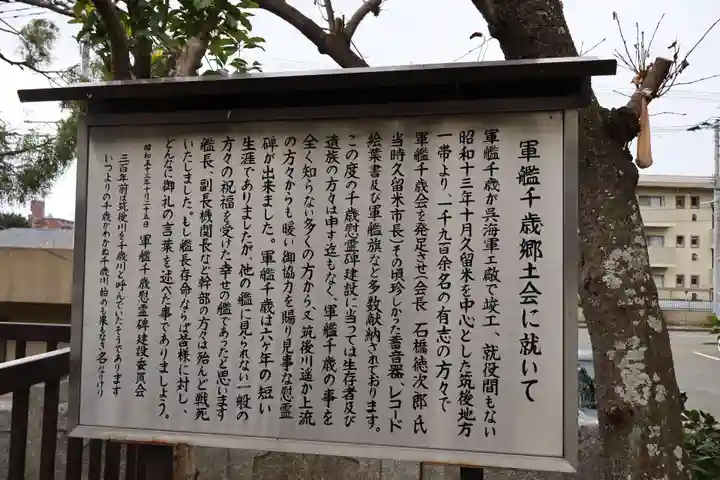 軍艦千歳郷土会に就いて
軍艦千歳が呉海軍工廠で竣工、就役間もない
昭和十三年十月久留米を中心とした筑後地方
一帯より、一千九百余名の有志の方々で
軍艦千歳会を発足させ(会長 石橋徳次郎氏
当時久留米市長)その頃珍しかった蓄音器、レコード
絵葉書及び軍艦旗など多数献納されております。
この度の千歳慰霊碑建設に当っては生存者及び
遺族の方々は申す迄もなく、軍艦千歳の事を
全く知らない多くの方から又筑後川遥か上流
の方々からも暖い御協力を賜り見事な慰霊
碑が出来ました。軍艦千歳は六ヶ年の短い
生涯でありましたが、他の艦に見られない一般の
方々の祝福を受けた幸せの艦であったと思います
艦長、副長機関長など幹部の方々は殆んど戦死
いたしました。もし艦長存命ならば皆様に対し、
どんなに御礼の言葉を述べた事でありましょう。
昭和五十三年十月二十五日 軍艦千歳慰霊碑建設委員会
三百年前は筑後川を千歳川と呼んでいたそうであります
いつよりの千歳かわかぬ千歳川始めも果もなき名なりけり